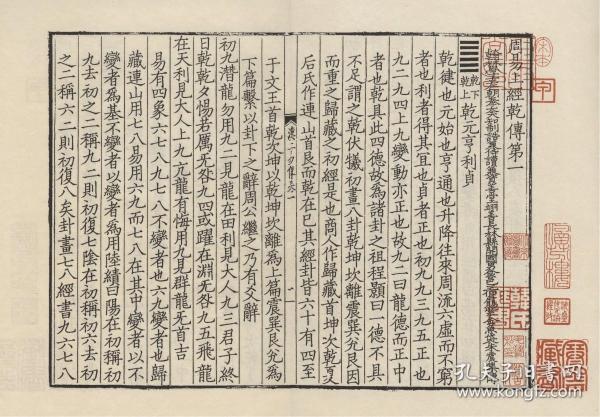 周易上經乾傳第一
乾下乾上 乾元亨利貞
乾健也元始也亨通也升降往來周流六虛而不窮
者也利者得其宜也貞者正也初九九三九五正也
九二九四上九變動亦正也故九二曰龍德而正中
者也乾具此四德故為諸卦之祖程顥曰一德不具
不足謂之乾伏犧初畫八卦乾坤坎離震巽兌艮因
而重之歸藏之初經是也商人作歸藏首坤次乾夏
后氏作連山首艮而乾在巳其經卦皆六十有四至
于文王乙首乾次坤以乾坤坎離為上篇震巽艮兌為
下篇繫以卦下之辭周公繼之乃有爻辭
初九潛龍勿用九二見龍在田利見大人九三君子終
日乾乾夕惕若厲无咎九四或躍在淵无咎九五飛龍
在天利見大人上九亢龍有悔用九見群龍无首吉
易有四象六七八九七八不變者也六九變者也歸
藏連山用七八易用六九而七八在其中變者以不
變者為基不變者以變者為用陸績曰陽在初稱初
九去初之二稱九二則初復七陰在初稱初六去初
之二稱六二則初復八矣卦畫七八經書九六七八